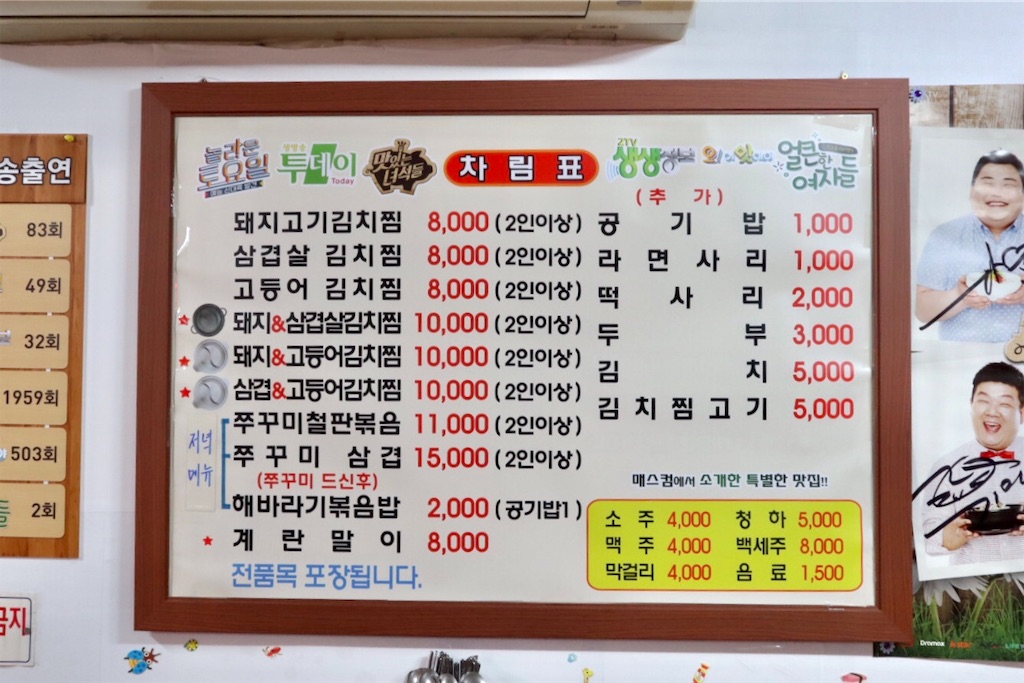 송출연
83회
49회
32회
1959회
503회
2회
금지
놀라운
토요일
생방송
투데이
Today
맛있는
녀석들
차림표
ZTV
생생
얼큰한
여자들
돼지고기김치찜 8,000 (2인이상)
삼겹살 김치찜 8,000 (2인이상)
고등어 김치찜 8,000 (2인이상)
돼지&삼겹살김치찜 10,000 (2인이상)
돼지&고등어김치찜 10,000 (2인이상)
삼겹&고등어김치찜 10,000 (2인이상)
저녁
메뉴
쭈꾸미철판볶음 11,000 (2인이상)
쭈꾸미 삼겹 15,000 (2인이상)
(쭈꾸미 드신후)
해바라기볶음밥 2,000 (공기밥1)
계란말이 8,000
전품목 포장됩니다.
(추가)
공기밥 1,000
라면사리 1,000
떡사리 2,000
두부 3,000
김치 5,000
김치찜고기 5,000
매스컴에서 소개한 특별한 맛집!!
소주 4,000 청하 5,000
맥주 4,000 백세주 8,000
막걸리 4,000 음료 1,500
Dramax